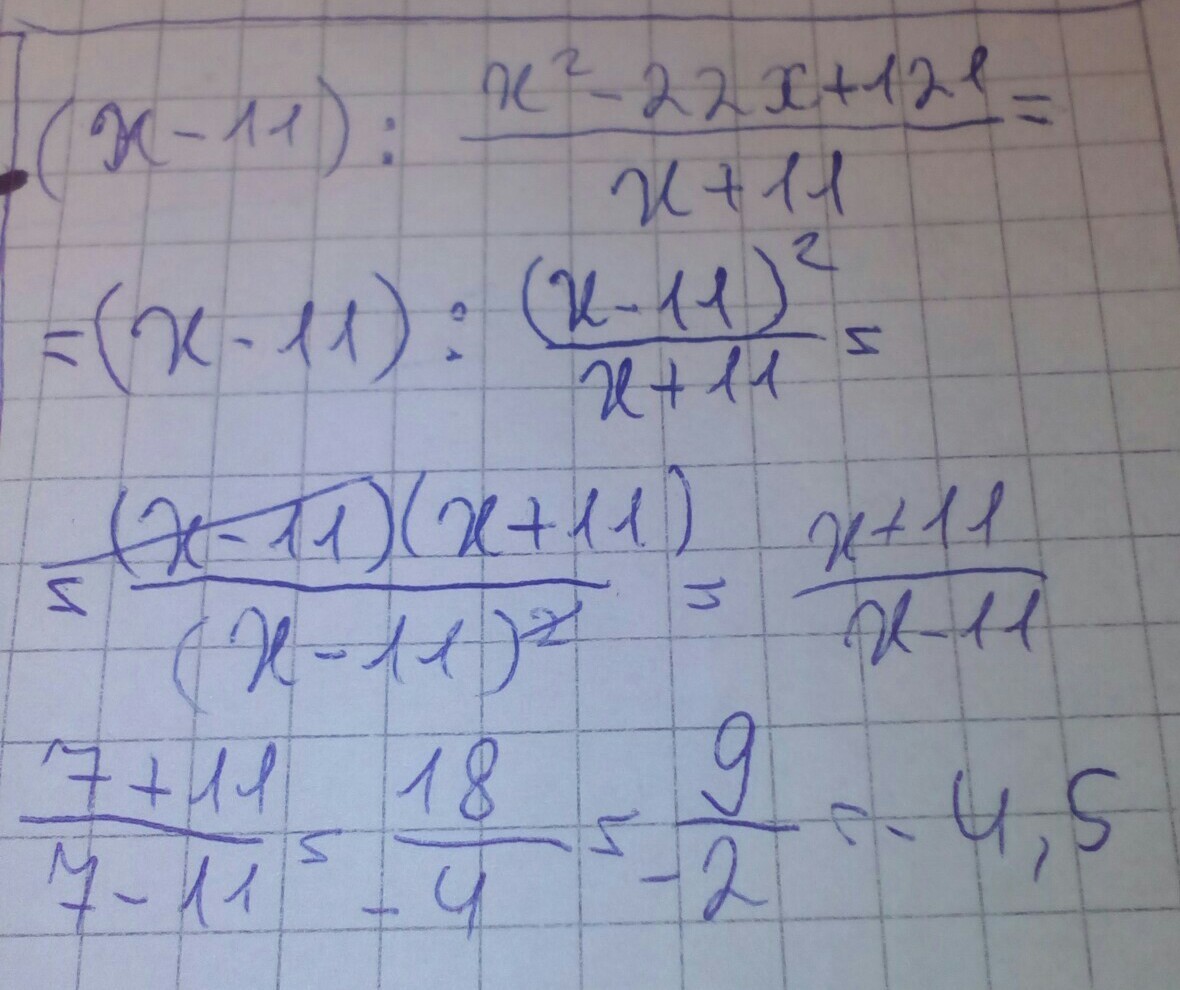 (x-11) : \frac{x²-22x+121}{x+11} =
= (x-11) : \frac{(x-11)²}{x+11} =
= \frac{(x-11)(x+11)}{(x-11)²} = \frac{x+11}{x-11}
\frac{7+11}{7-11} = \frac{18}{-4} = \frac{9}{-2} = -4,5